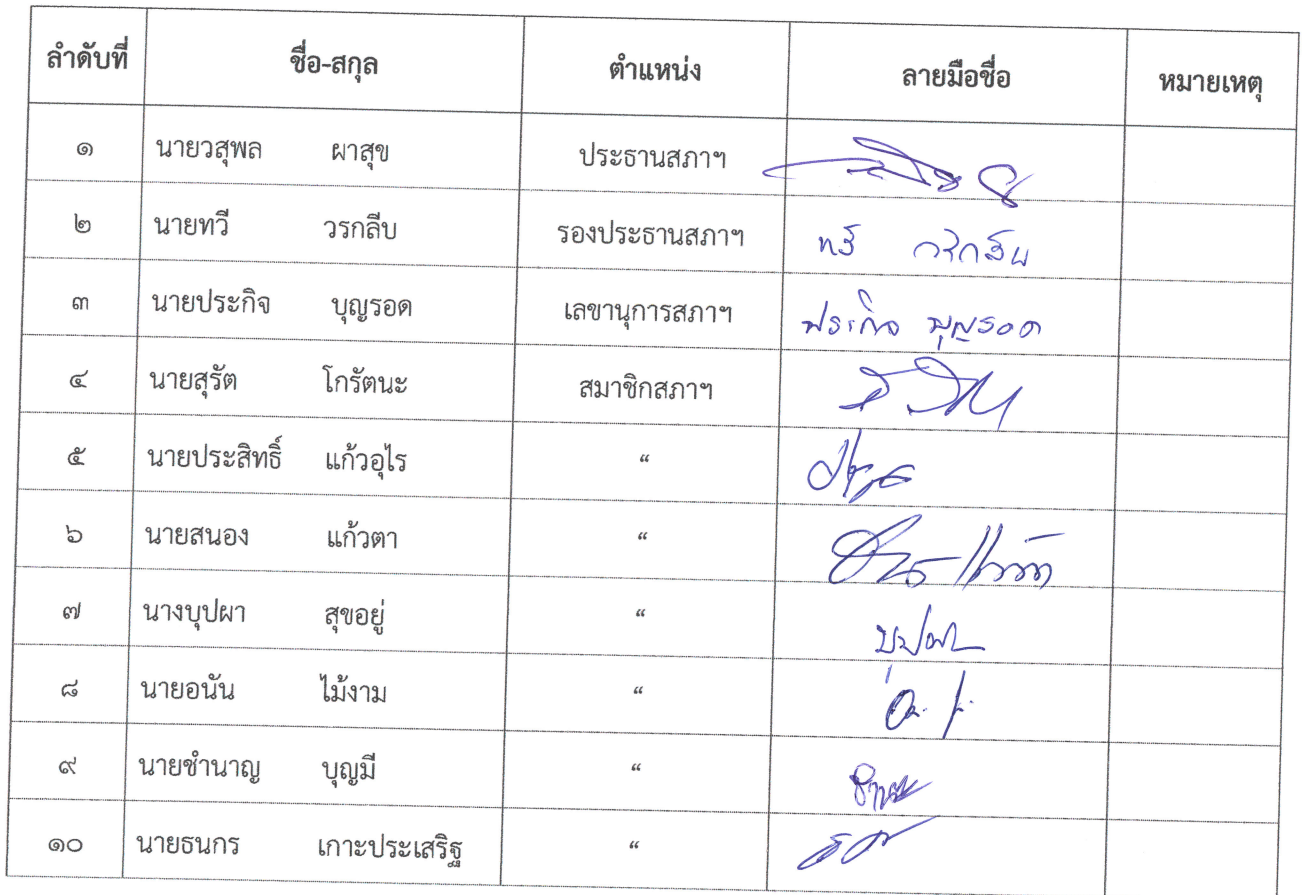 ลำดับที่ ชื่อ-สกุล ตำแหน่ง ลายมือชื่อ หมายเหตุ
๑ นายวสุพล ผาสุข ประธานสภาฯ
๒ นายทวี วรกลีบ รองประธานสภาฯ ทวี วรกลีบ
๓ นายประกิจ บุญรอด เลขานุการสภาฯ ประกิจ บุญรอด
๔ นายสุรัต โกรัตนะ สมาชิกสภาฯ
๕ นายประสิทธิ์ แก้วอุไร “
๖ นายสนอง แก้วตา “
๗ นางบุปผา สุขอยู่ “ บุปผา
๘ นายอนัน ไม้งาม “
๙ นายชำนาญ บุญมี “
๑๐ นายธนกร เกาะประเสริฐ “